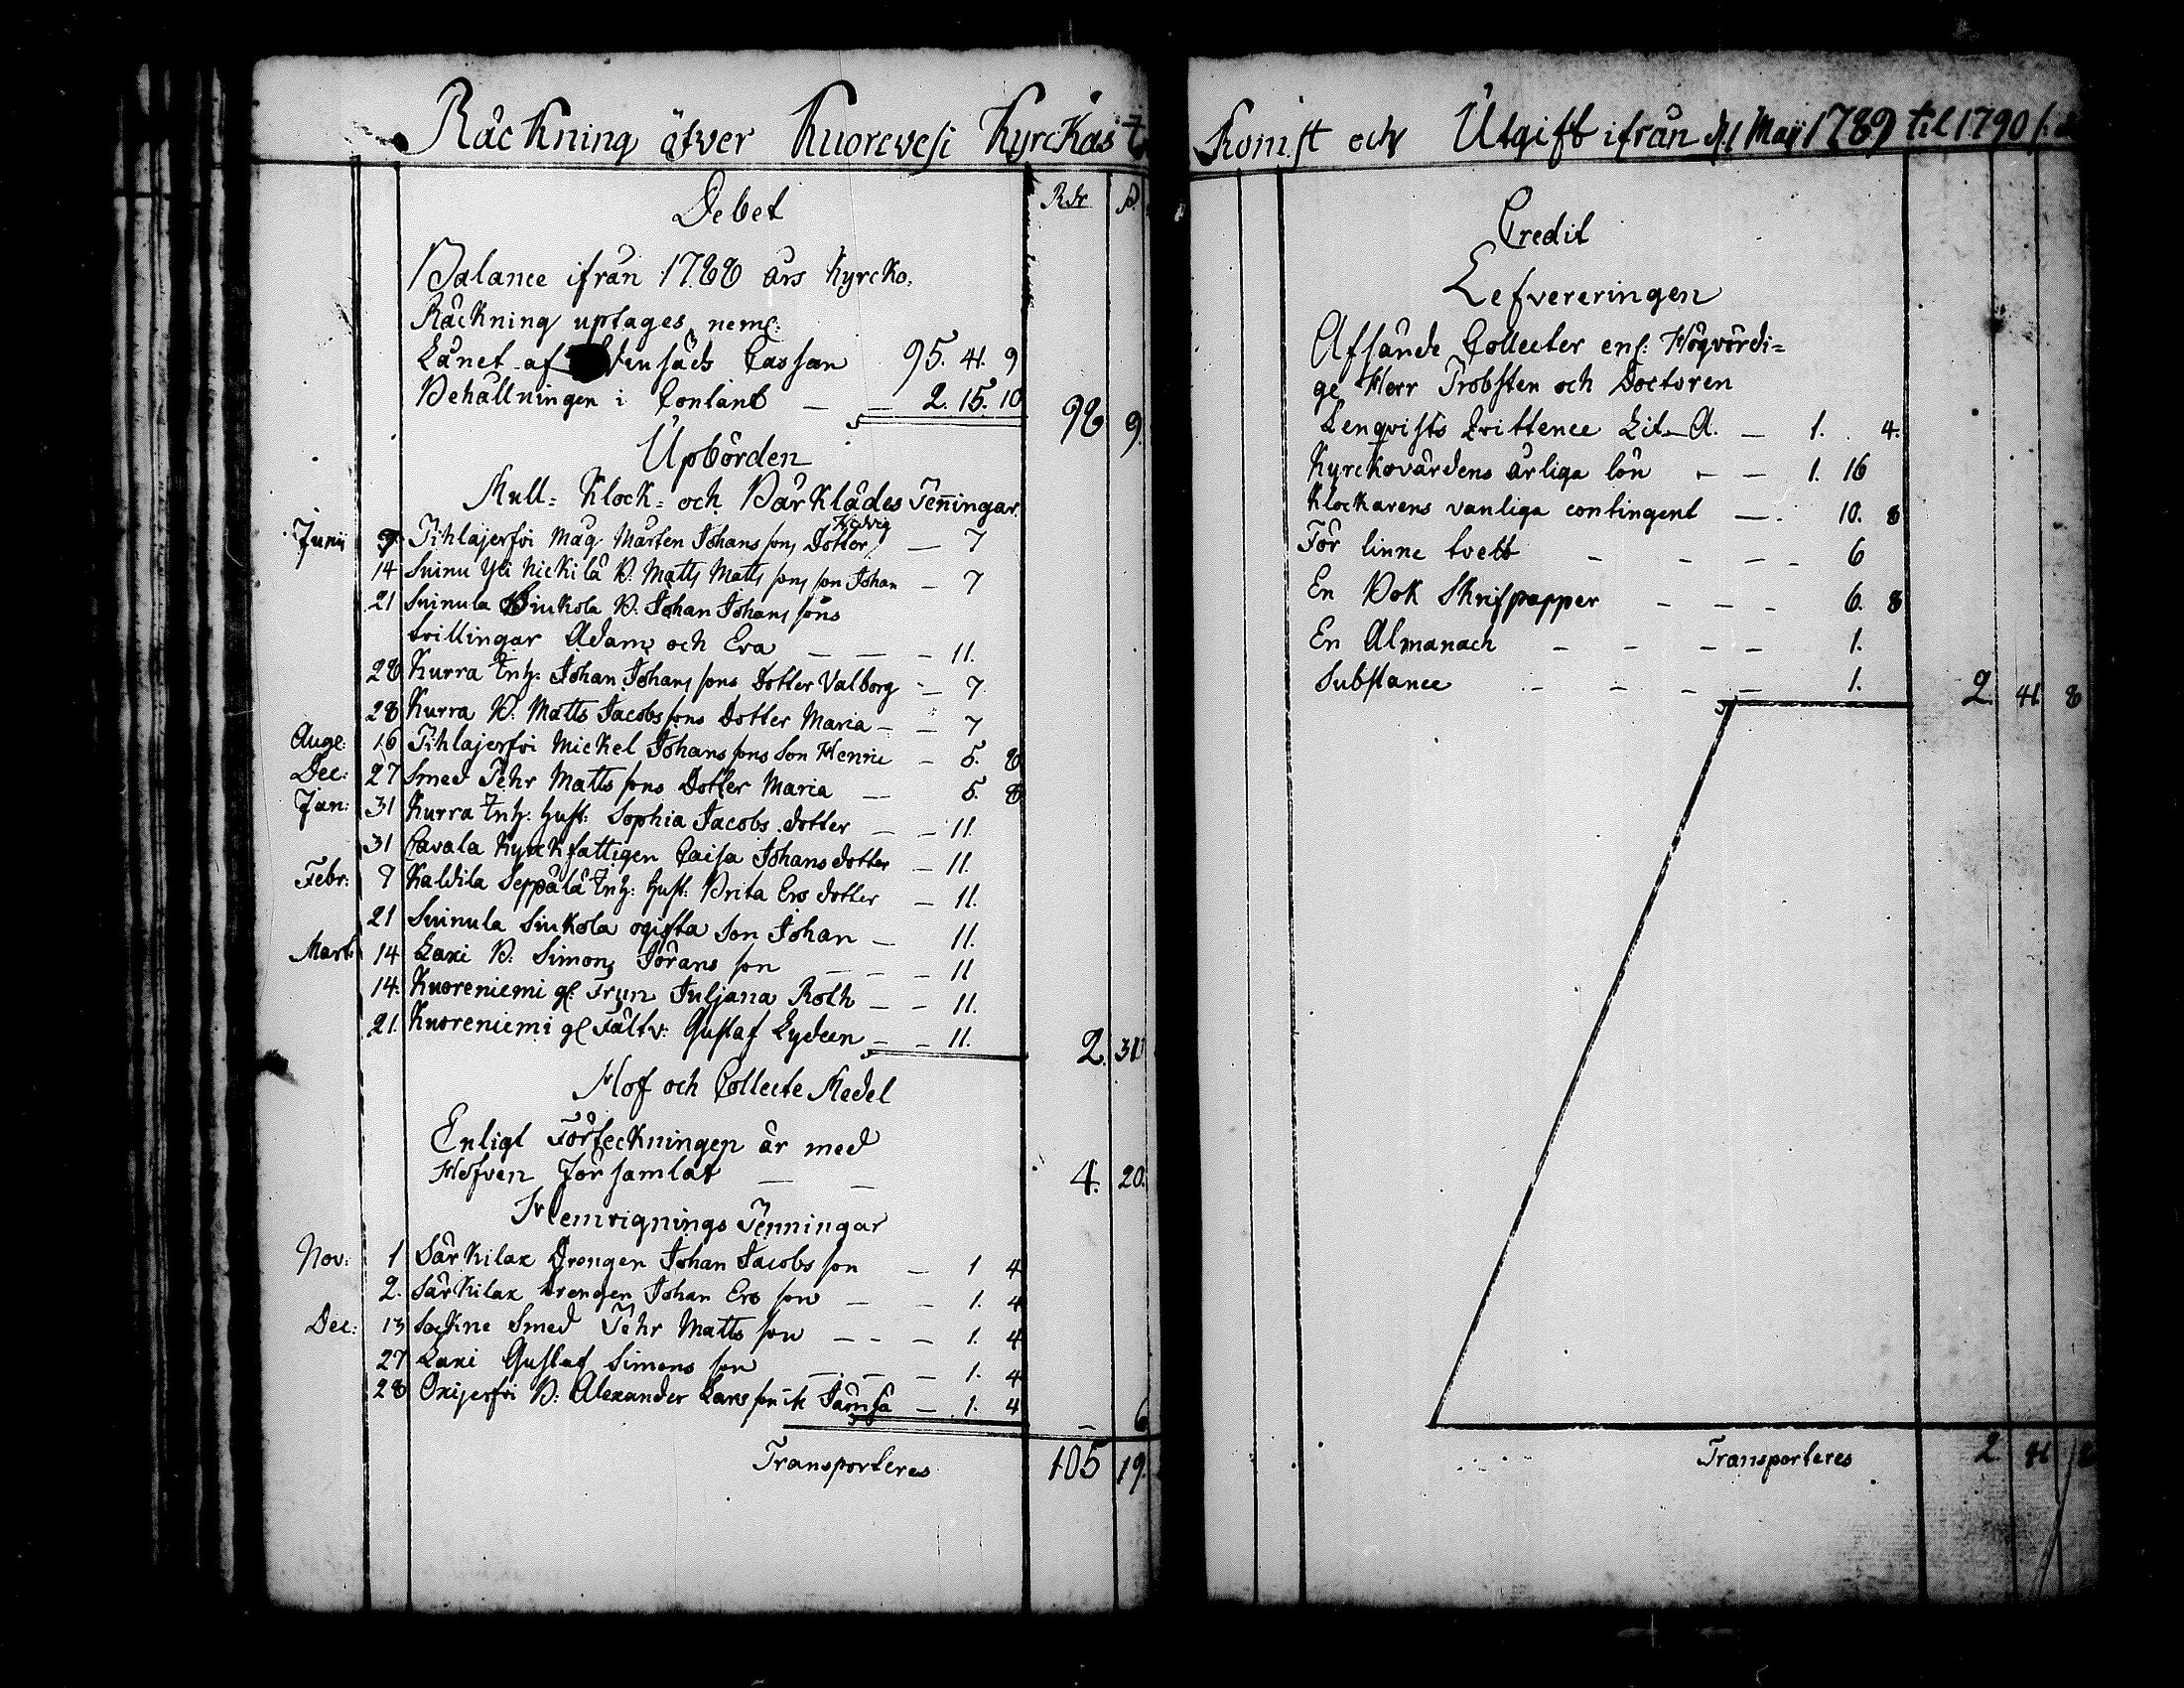 Räckning öfver Kuorevesi Kyrckas
Debet
Rdr
Balance ifrån 1788 års Kyrcko
Räckning uptages neml:
Lånet af Cassan 95. 41. 9
Behållningen i Contant — — 2. 15. 10
98 9.
Upbörden
Mull= Klock= och Bårklädes Peñingar.
Hedvig
Junii 7 Pihlajerfvi Måg Mårten Johans sons Dotter — 7
14 Suinu Yli Nickilä B. Matts Matts sons son Johan — 7
21 Suinula Siukola B. Johan Johans sons
tvillingar Adam och Eva — — — 11.
28 Kurra Inh: Johan Johans sons Dotter Valborg — 7.
28 Kurra B: Matts Jacobs sons Dotter Maria — — 7
Aug: 16 Pihlajerfvi Mickel Johans sons Son Henric — 5. 8
Dec: 27 Smed Pehr Matts sons Dotter Maria — 5. 8
Jan: 31 Kurra Inh: Hust: Sophia Jacobs dotter — — 11.
31 Pavala Kyrckfattigen Caisa Johans dotter — 11.
Febr: 7 Kaldila Seppälä Inh: Hust. Brita Ers dotter — 11.
21 Suinula Siukola ogifta Son Johan — 11.
Mart: 14 Laxi B: Simon Jörans son — — — 11
14. Kuoreniemi gl: Frun Juljana Roth — — 11.
21. Kuoreniemi gl Fältv: Gustaf Lydeen — — 11.
2. 31
Hof och Collecte Medel
Enligt Förteckningen är med
Håfven församlat — — 4. 20.
Hemvignings Penningar
Nov: 1 Särkilax Drengen Johan Jacobs son — 1 4
2. Särkilax Drengen Johan Ers son — — 1. 4
Dec: 13 Sockne Smed Pehr Matts son — — — 1. 4
27 Laxi Gustaf Simons son — — — 1. 4
28 Oxijerfvi B: Alexander Lars son i Jämsä — 1. 4
— 6
Transporteres 105 19.
Komst och Utgift ifrån d. 1 Maji 1789 til 1790
Credit
Lefvereringen
Afsände Collecter enl: Högvördi=
ge Herr Probsten och Doctoren
Lenqvists Qvittence Lit. A. — 1. . 4.
Kyrckovärdens årliga lön — — 1. 16
Klockarens vanliga contingent — . 10. 8
För linne tvett — — — — 6
En Bok Skrifpapper — — — 6. 8
En Almanach — — — — 1.
Substance — — — — 1.
2. 41. 8
Transporteres 2 41 8